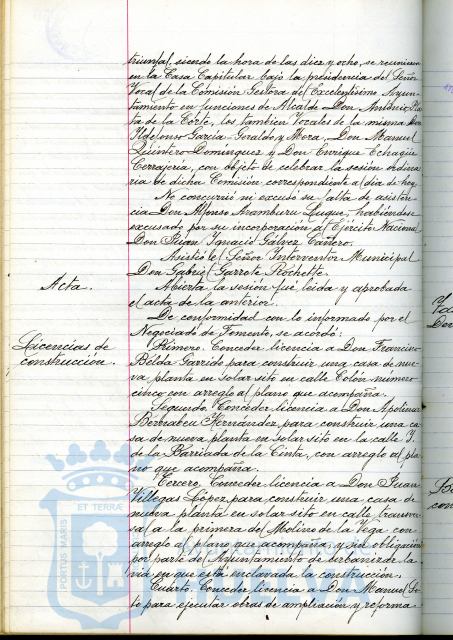 triunfal, siendo la hora de las diez y ocho, se reunieron
en la Casa Capitular bajo la presidencia del Señor
Vocal de la Comisión Gestora del Excelentísimo Ayun-
tamiento en funciones de Alcalde Don Antonio
ta de la Corte, los tambien Vocales de la misma Don
Ildefonso García-Giraldo y Mora, Don Manuel
Quintero Domínguez y Don Enrique Echagüe
Cerrajería, con objeto de celebrar la sesión ordina-
ria de dicha Comisión correspondiente al día de hoy.
No concurrió ni excusó su falta de asisten-
cia Don Alfonso Aramburu Luque, habiéndose
excusado por su incorporación al Ejército Nacional
Don Juan Ignacio Gálvez Cañero.
Asistió el Señor Interventor Municipal
Don Gabriel Garrote Rochette.
Acta.
Abierta la sesión fué leida y aprobada
el acta de la anterior.
De conformidad con lo informado por el
Negociado de Fomento, se acordó:
Licencias de
construcción.
Primero. Conceder licencia a Don Francisco
Belda Garrido para construir una casa de nue-
va planta en solar sito en calle Colón número
cinco con arreglo al plano que acompaña.
Segundo. Conceder licencia a Don Apolinar
Bernabeu Hernández, para construir una ca-
sa de nueva planta en solar sito en la calle
de la Barriada de la Cinta, con arreglo al pla-
no que acompaña.
Tercero. Conceder licencia a Don Juan
Villegas López, para construir una casa de
nueva planta en solar sito en calle transver-
sal a la primera del Molino de la Vega con
arreglo al plano que acompaña y sin obligación
por parte del Ayuntamiento de urbanizar la
vía en que está enclavada la construcción.
Cuarto. Conceder licencia a Don Manuel So-
to para ejecutar obras de ampliación y reforma
PORTUS MARIS
ET TERRÆ